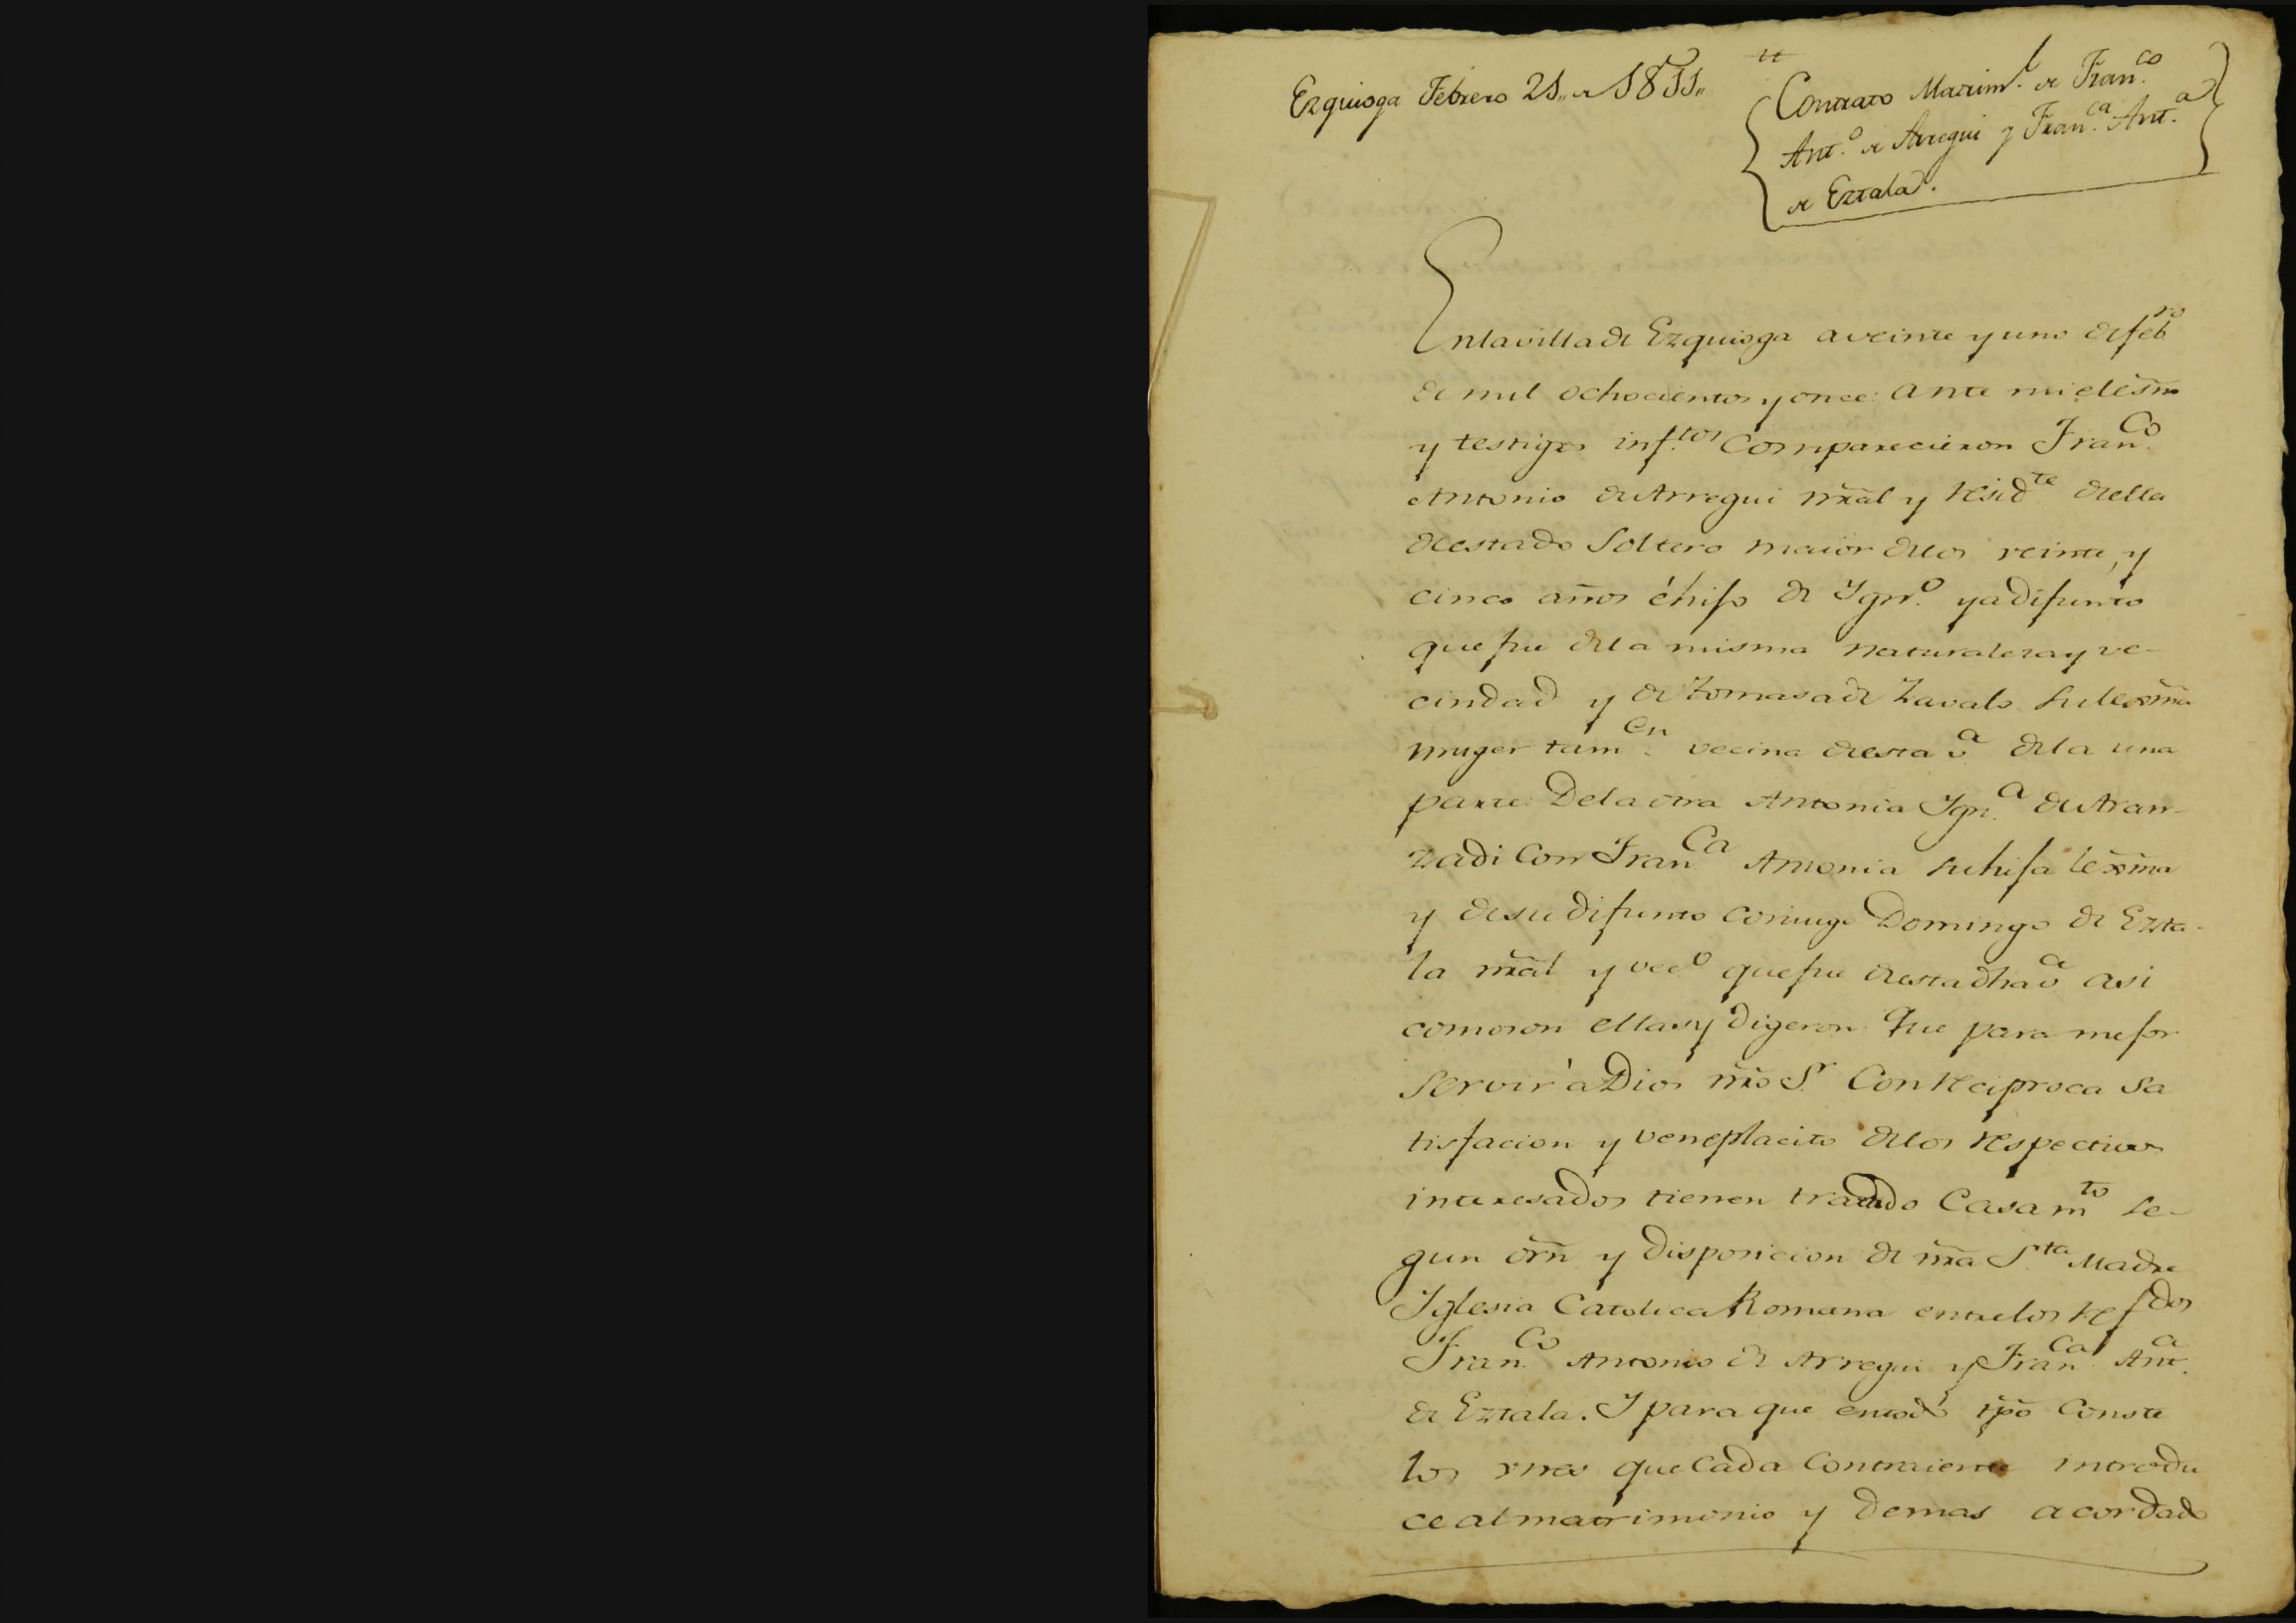 Ezquioga Febrero 21,, de 1811,,
Contrato Matrim.l de Fran.co
Ant.o de Arregui y Fran.ca Ant.a
de Eztala.
En la villa de Ezquioga a veinte y uno de feb.ro
de mil ochocientos y once: ante mi el esno
y testigos inf.tos comparecieron Fran.co
Antonio de Arregui nral y resid.te de ella
de estado soltero maior de los veinte, y
cinco años é hijo de Ygn.o ya difunto
que fue de la misma naturaleza y ve-
cindad y de Tomasa de Zavalo su lexma
muger tam.en vecina de esta v.a de la una
parte: De la otra Antonia Ygn.a de Aran-
zadi con Fran.ca Antonia su hija lexma
y de su difunto coniuge Domingo de Ezta-
la nral y vec.o que fue de esta dha v.a asi
como son ellas y digeron: Que para mejor
servir à Dios nro S.r con reciproca sa
tisfacion y veneplacito de los respectivos
interesados tienen tratado casam.to se-
gun orn y disposicion de nra S.ta Madre
Yglesia Catolica Romana entre los ref.dos
Fran.co Antonio de Arregui y Fran.ca Ant.a
de Eztala. Y para que en todo tpo conste
los vnes que cada contraiente introdu
ce al matrimonio y demas acordado